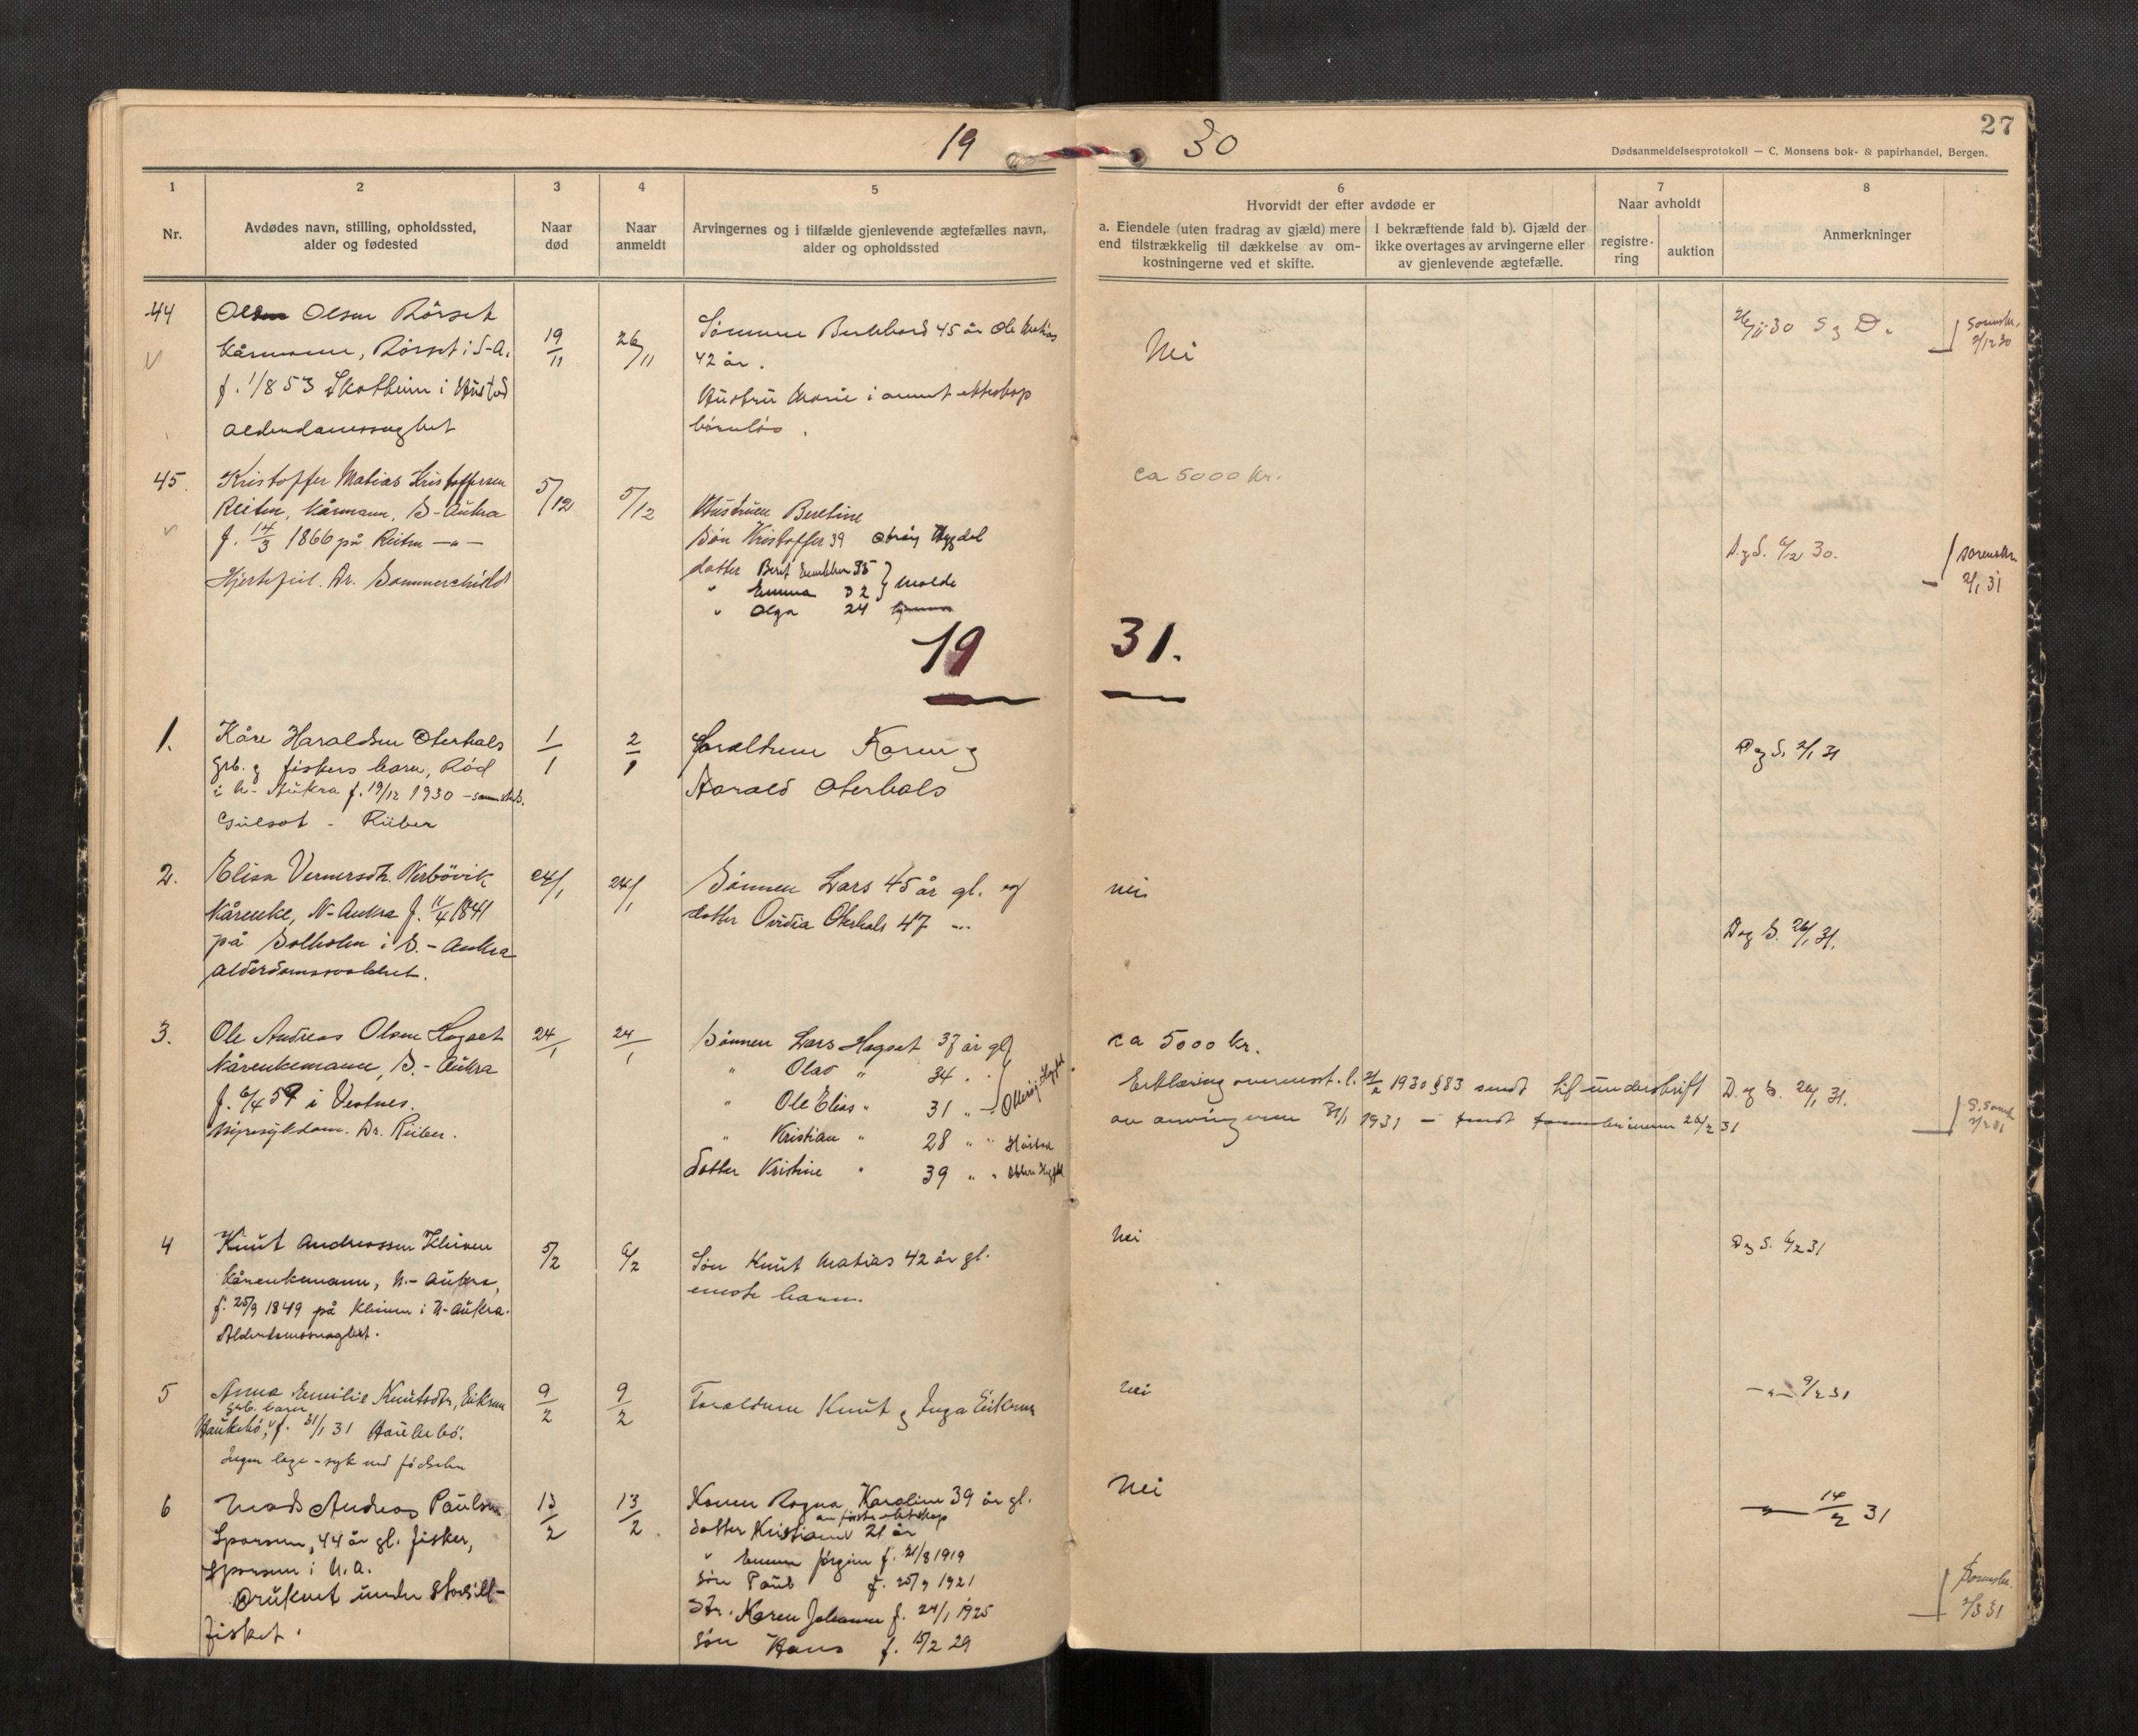 19 30
27
Dødsanmeldelsesprotokoll — C. Monsens bok- & papirhandel, Bergen.
1
Nr.
2
Avdødes navn, stilling, opholdssted,
alder og fødested
3
Naar
død
4
Naar
anmeldt
5
Arvingernes og i tilfælde gjenlevende ægtefælles navn,
alder og opholdssted
6
Hvorvidt der efter avdøde er
a. Eiendele (uten fradrag av gjæld) mere
end tilstrækkelig til dækkelse av om-
kostningerne ved et skifte.
I bekræftende fald b). Gjæld der
ikke overtages av arvingerne eller
av gjenlevende ægtefælle.
7
Naar avholdt
registre-
ring
auktion
8
Anmerkninger
44
Olsen Rörset
Kårmann, Rörset i S-A.
f. 1/8 53 Skotheim i Hustad
19/11
26/11
45 år Ole Matias
42 år.
Hustru Marie i annet ekteskap
barnløs.
Nei
26/11 30 S g D.
Sorenskr.
2/12 30
45.
Kristoffer Matias Kristoffersen
Reiten, kårmann, S-Aukra
f. 14/3 1866 på Reiten -"-
Hjertefeil. Dr. Sommerschild
5/12
5/12
Hustruen Beretine
Søn Kristoffer 39
datter Berit 35
" Emma 32 } Molde
" Olga 24
ca 5000 kr.
D. g S. 6/12 30.
Sorenskr.
2/1 31
19 31.
1.
Kåre Haraldsen Oterhals
grb. g fiskers barn, Röd
i N-Aukra f. 19/12 1930 - sammesteds.
Gulsot - Riiber
1/1
2/1
Foreldrene Karen g
Harald Oterhals
D g S. 2/1 31
2.
Elisa Vernersdtr. Nerbövik
Kårenke, N-Aukra f. 11/4 1841
på Solholm i S.-Aukra
24/1
24/1
Sönnen Lars 45 år gl. og
datter Ovidia Oterhals 47 -"-
nei
D og S. 26/1 31.
3.
Ole Andreas Olsen Hagset
Kårenkemann, S.-Aukra
f. 6/4 59 i Vestnes.
Nyresykdom. Dr. Riiber.
24/1
24/1
Sönnen Lars Hagset 37 år gl.
" Olav " 34 "
" Ole Elias " 31 "
" Kristian " 28 " " Hustad
Datter Kristine " 39 " "
ca 5000 kr.
Erklæring l. 21/2 1930 § 83 sendt til underskrift
av arvingerne 31/1 1931 - 20/2 31
D. g S. 26/1 31.
4
Knut Andreassen Kleiven
Kårenkemann, N-Aukra,
f. 25/9 1849 på Kleiven i N-Aukra.
Alderdomssvaghet.
5/2
6/2
Søn Knut Matias 42 år gl.
eneste barn.
Nei
D g S. 6/2 31
5
Anna Emilie Knutsdtr. Eikrem
grb. barn
Haukebö, f. 31/1 31 Haukebö.
Ingen læge - syk ved fødselen
9/2
9/2
Foreldrene Knut g Inga Eikrem
Nei
-"- 9/2 31
6
Mads Andreas Paulsen
Sporsem, 44 år gl. fisker,
Sporsem i N.A.
Druknet under storsild-
fisket.
13/2
13/2
Konen Ragna Karoline 39 år gl.
av første ekteskap
Datter Kristiane 21 år
" Emma Jörgine f. 21/8 1919
Søn Paul f. 25/9 1921
Dtr. Karen Johanne f. 24/1 1925
Søn Hans f. 15/2 29
Nei
-"- 14/2 31
Sorenskr.
2/3 31